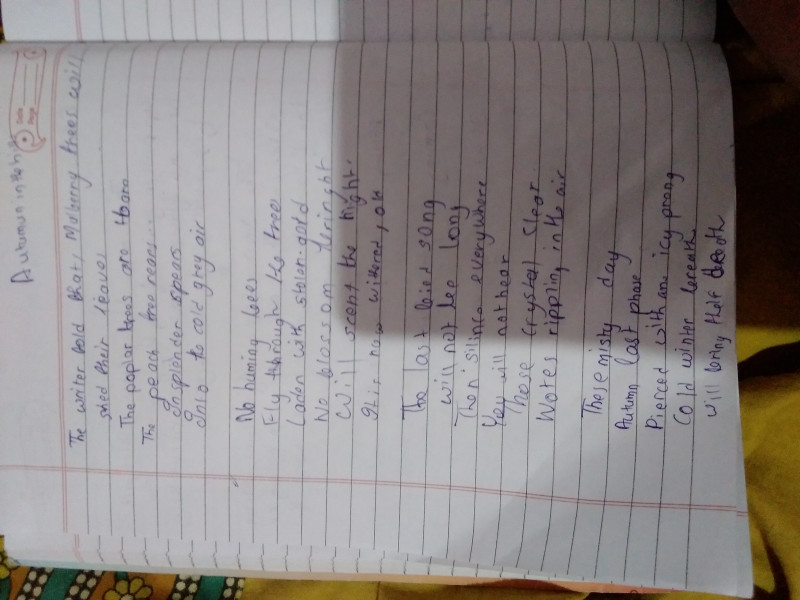 Autumn in the
Date
Page
The writer told that, Mulberry trees will
shed their leaves
The poplar trees are
The peach tree rears...
In splender spears
Into the cold grey air
No huming bees
Fly through the trees
Laden with stolen gold
No blossom
Will scent the night.
It is now withered, old
The last bird song
will not be long
Then silince everywhere
You will not hear
Those crystal clear
Notes rippling in the air
These misty day
Autumn last phase
Pierced with an icy prong
Cold winter bereath
will bring their